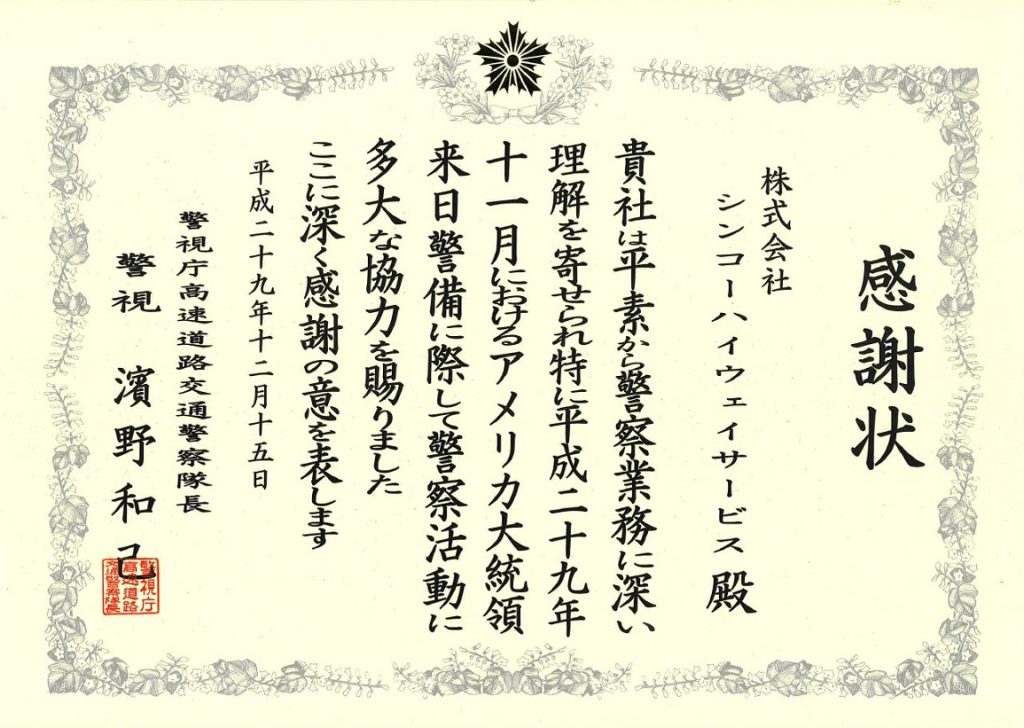 感謝状
株式会社
シンコーハイウェイサービス 殿
貴社は平素から警察業務に深い
理解を寄せられ特に平成二十九年
十一月におけるアメリカ大統領
来日警備に際して警察活動に
多大な協力を賜りました
ここに深く感謝の意を表します
平成二十九年十二月十五日
警視庁高速道路交通警察隊長
警視 濱野和己
警視庁
高速道路
交通警察隊長